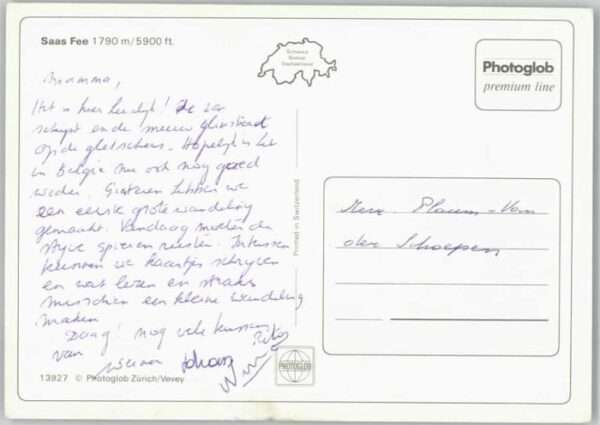 Saas Fee 1790 m/5900 ft.
Schweiz
Suisse
Switzerland
Photoglob
premium line
Bramma,
Het is hier heerlijk! De zon
schijnt en de sneeuw glinstert
op de gletschers. Hopelijk is het
in België nu ook nog goed
weder. Gisteren hebben we
een eerste grote wandeling
gemaakt. Vandaag moeten de
stijve spieren rusten. Intussen
kunnen we kaartjes schrijven
en wat lezen en straks
misschien een kleine wandeling
maken
Daag! nog vele kussen
van
Johan
Printed in Switzerland
Mevr.
der Schoepen
PHOTOGLOB
13927 © Photoglob Zürich/Vevey